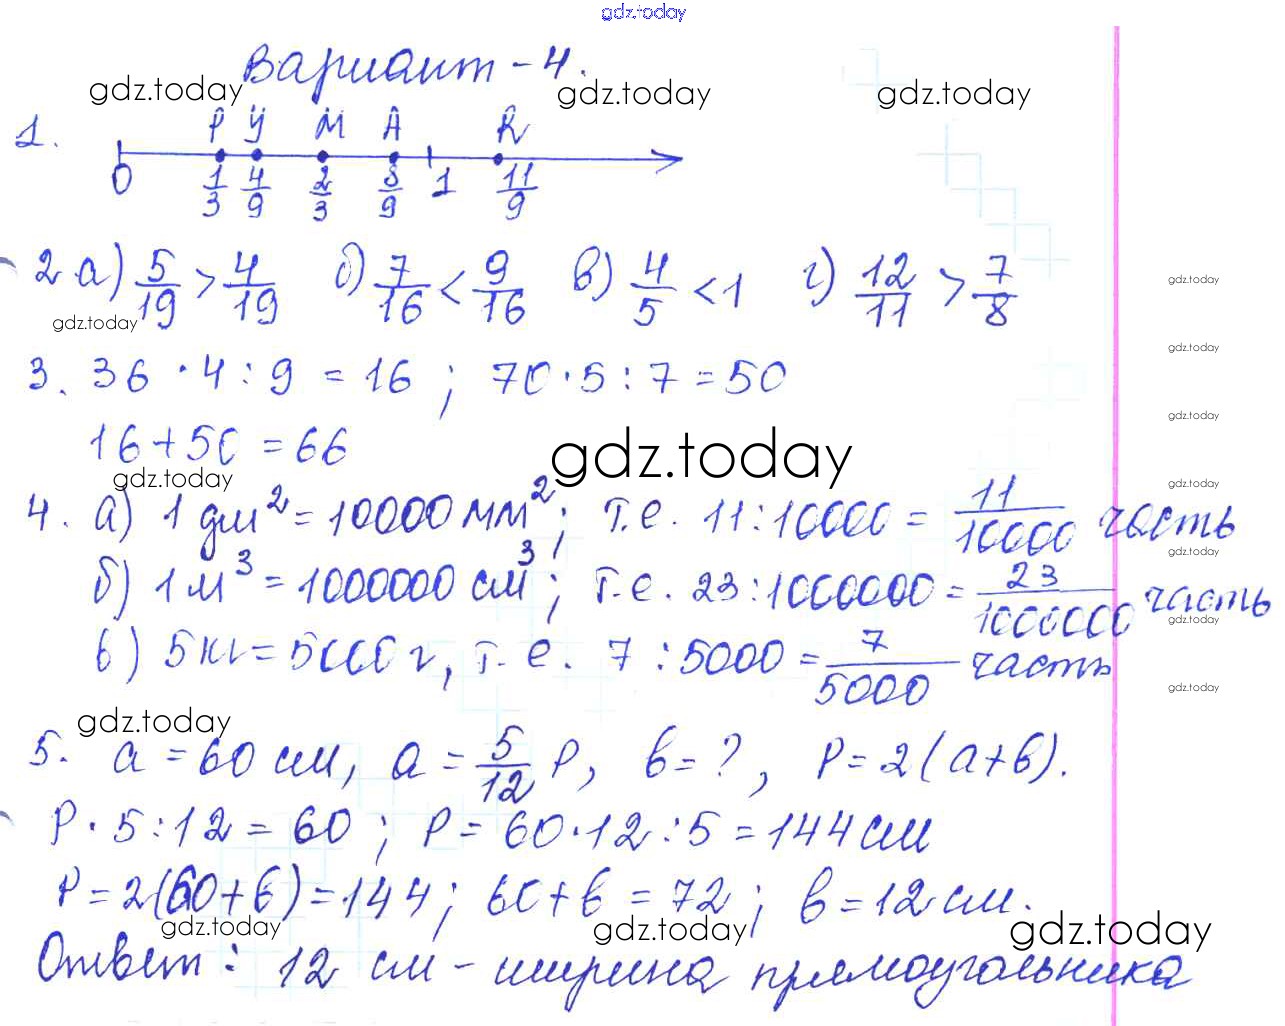 gdz.today
Вариант - 4.
gdz.today gdz.today gdz.today
1. P У M A R
0 1/3 4/9 2/3 8/9 1 11/9
2. а) 5/19 > 4/19 б) 7/16 < 9/16 в) 4/5 < 1 г) 12/11 > 7/8
gdz.today
gdz.today
gdz.today
3. 36 · 4 : 9 = 16 ; 70 · 5 : 7 = 50
gdz.today
16 + 50 = 66
gdz.today
gdz.today
gdz.today
4. а) 1 дм² = 10000 мм² ; т.е. 11 : 10000 = 11/10000 часть
gdz.today
б) 1 м³ = 1000000 см³ ; т.е. 23 : 1000000 = 23/1000000 часть
gdz.today
в) 5 кг = 5000 г, т. е. 7 : 5000 = 7/5000 часть
gdz.today
gdz.today
5. a = 60 см, a = 5/12 P, b = ? , P = 2 (a + b).
P · 5 : 12 = 60 ; P = 60 · 12 : 5 = 144 см
P = 2 (60 + b) = 144 ; 60 + b = 72 ; b = 12 см.
gdz.today gdz.today gdz.today
Ответ: 12 см - ширина прямоугольника